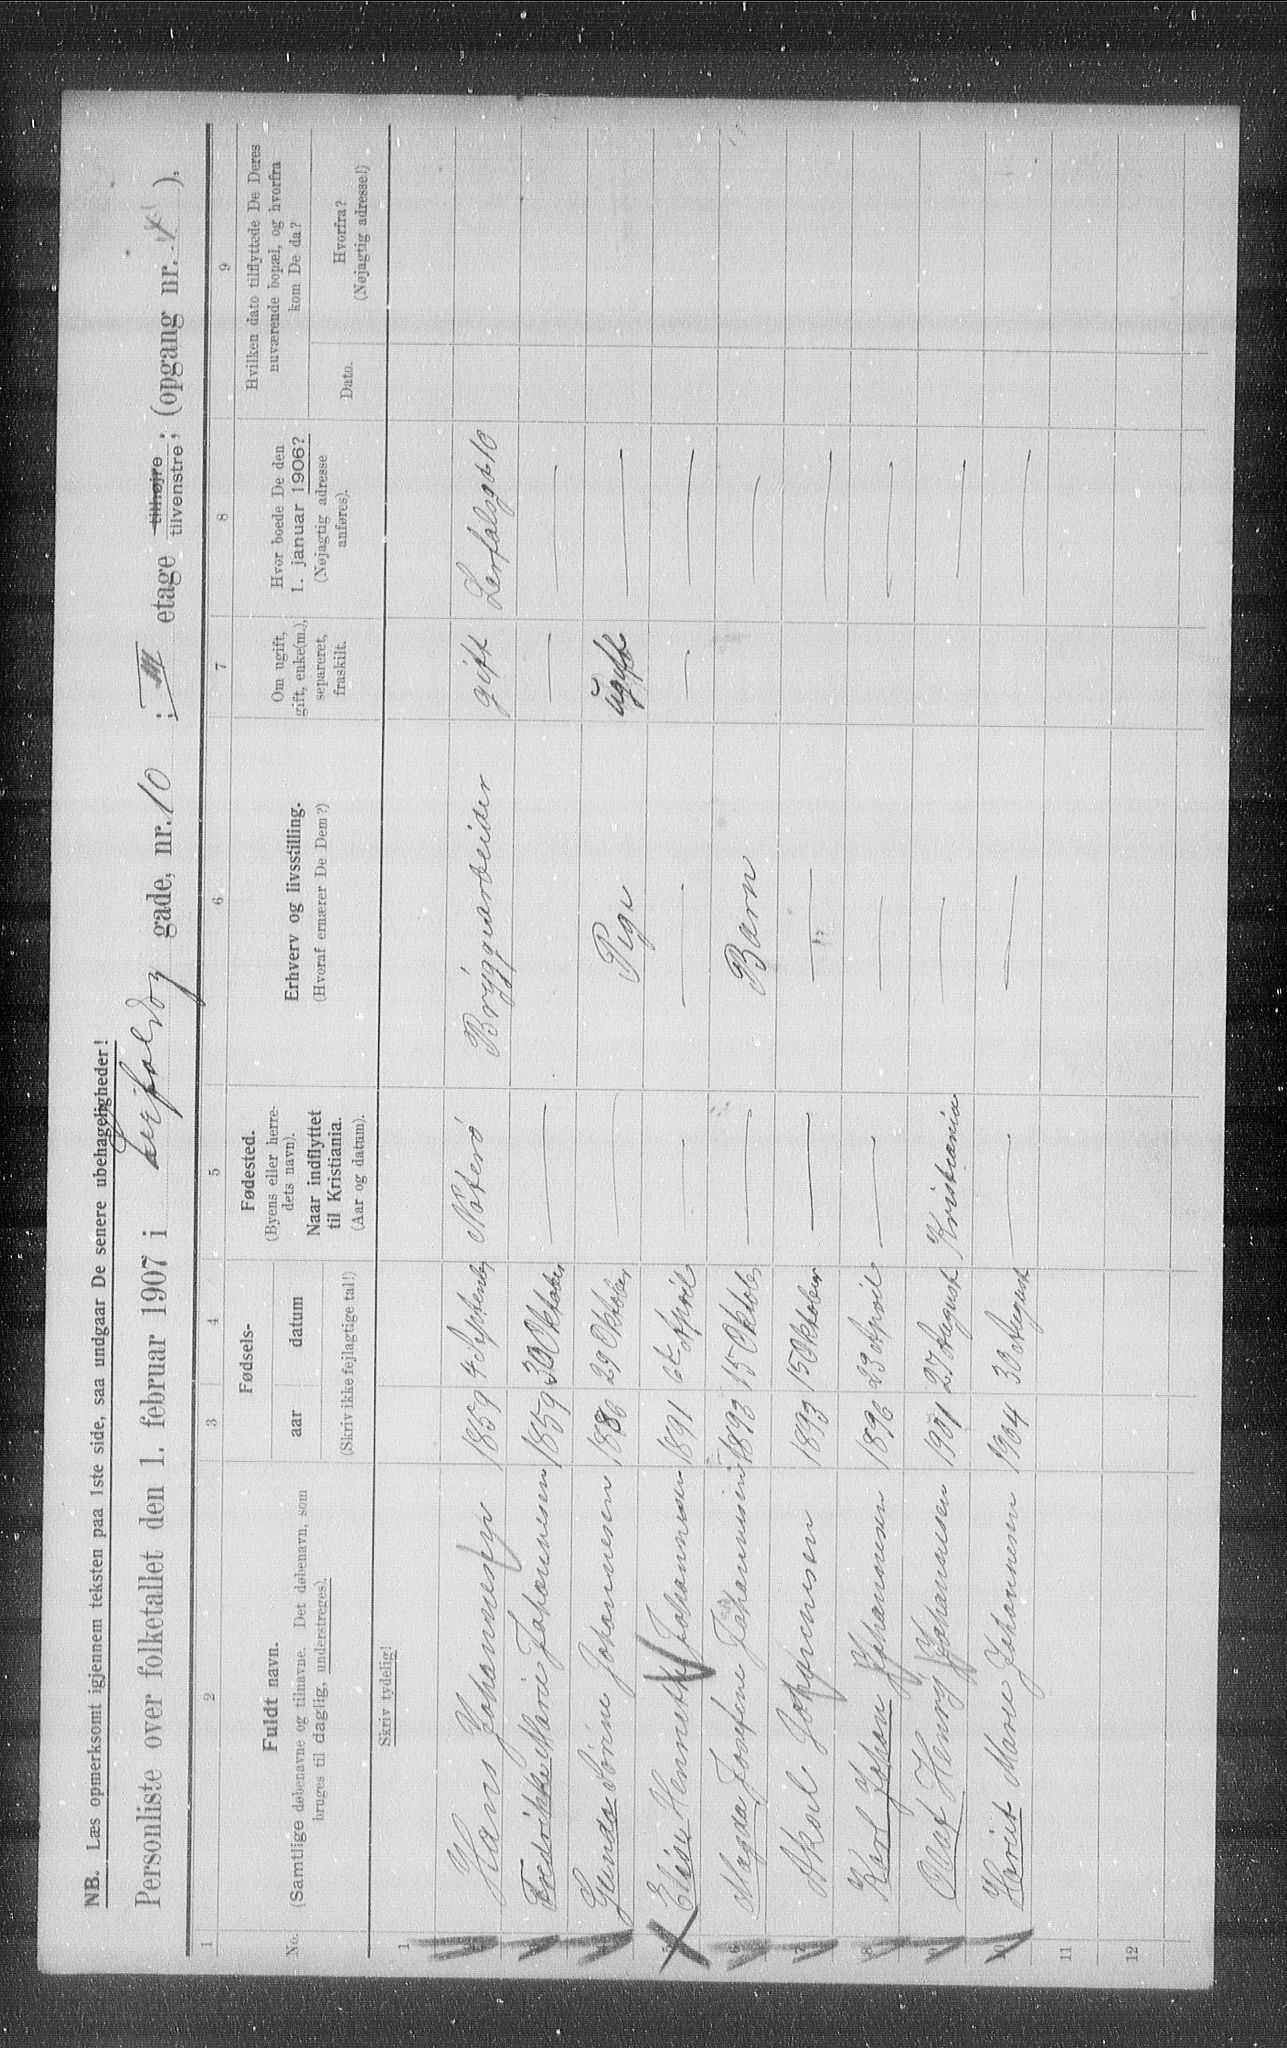 NB. Læs opmerksomt igjennem teksten paa 1ste side, saa undgaar De senere ubehageligheder!
Personliste over folketallet den 1. februar 1907 i gade, nr. 10 ; III etage tilhøjre tilvenstre ; (opgang nr. ),
1 2 3 4 5 6 7 8 9
No. Fuldt navn. (Samtlige døbenavne og tilnavne. Det døbenavn, som bruges til daglig, understreges).
Fødsels- aar datum (Skriv ikke fejlagtige tal!)
Fødested. (Byens eller herredets navn). Naar indflyttet til Kristiania. (Aar og datum).
Erhverv og livsstilling. (Hvoraf ernærer De Dem?)
Om ugift, gift, enke(m.), separeret, fraskilt.
Hvor boede De den 1. januar 1906? (Nøjagtig adresse anføres).
Hvilken dato tilflyttede De Deres nuværende bopæl, og hvorfra kom De da?
Dato. Hvorfra? (Nøjagtig adresse!)
Skriv tydelig!
1
Hans Johannesen 1859 4 Septemb Nøterø Bryggearbeider gift Lerfalsgt 10
Fredrikke Marie Johannesen 1859 30 Oktober — — —
Gunda Sørine Johannesen 1886 29 Oktober — Pige ugift —
5 Elise Henriette Johannesen 1891 6te April — — — —
6 Magda Josefine Johannesen 1893 15 Oktob — Barn —
7 Aksel Johannesen 1893 15 Oktober — — —
8 Karl Johan Johannesen 1896 23 April — — —
9 Olaf Henry Johannesen 1901 27 August Kristiania — —
10 Hariet Marie Johannesen 1904 30 August — — —
11
12